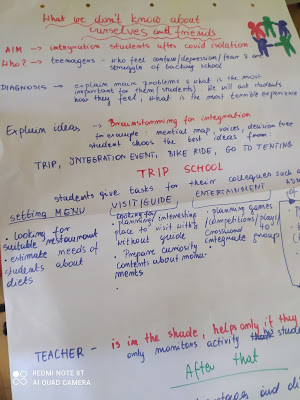 What we don't know about
ourselves and friends
AIM → integration students after covid isolation.
Who? → teenagers - who feel confuse/depression/fear &
struggle of backing school
DIAGNOSIS → explain main problems & what is the most
important for them (students). We will ask students
how they feel, What is the most terrible experience
Explain ideas → Brainstamming for integration
for example: mental map, voices, decision tree
student choos the best ideas from:
TRIP, INTEGRATION EVENT, BIKE RIDE, GO TO TENTING.
TRIP SCHOOL
students give tasks for their collegues such a
setting MENU
• looking for
suitable restaurant
• estimate needs of
students about
diets
VISIT/GUIDE
• looking for
planning/interesting
place to visit with &
without guide
• Prepare curiosity
contents about monu-
ments
ENTERTAINMENT
- planning games
/competitions/play/
crossword to
integrate group
TEACHER - is in the shade, helps only if they
only monitors activity stude
After that
REDMI NOTE 8T
AI QUAD CAMERA